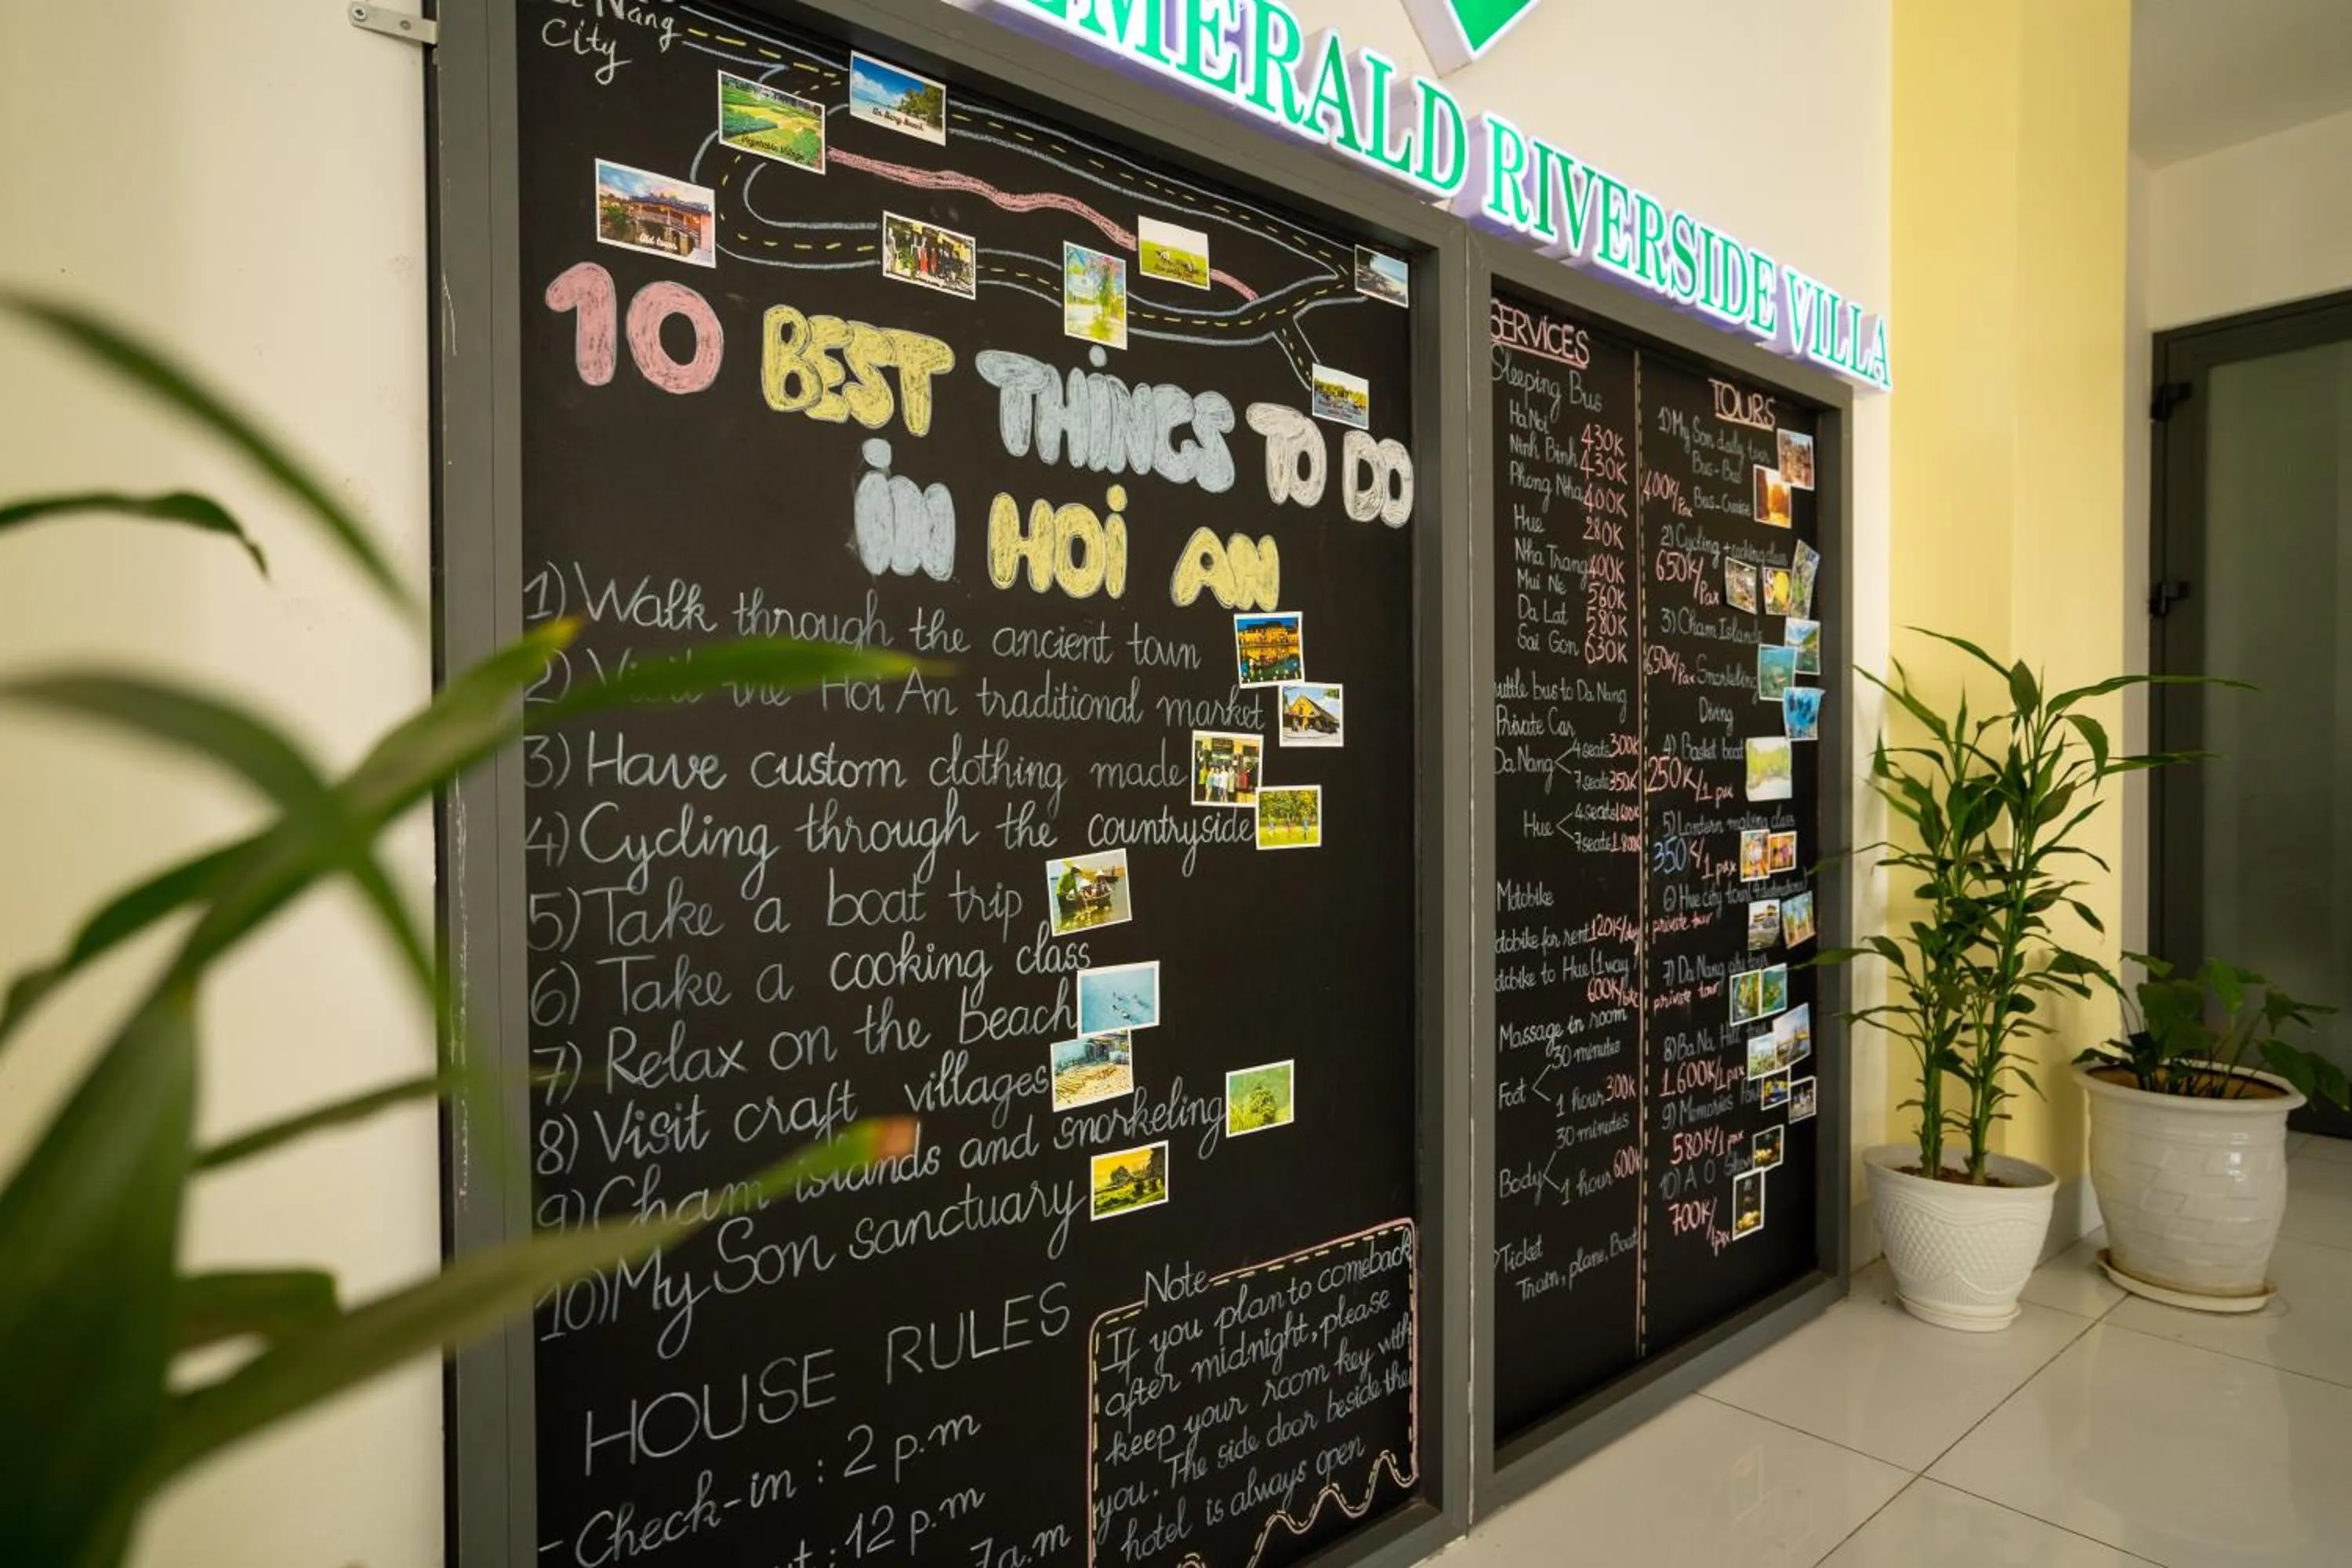 EMERALD RIVERSIDE VILLA
Nang
City
Vegetable Village
An Bang Beach
Old town
10 BEST THINGS TO DO
in HOi AN
1) Walk through the ancient town
2) Visit the Hoi An traditional market
3) Have custom clothing made
4) Cycling through the countryside
5) Take a boat trip
6) Take a cooking class
7) Relax on the beach
8) Visit craft villages
9) Cham islands and snorkeling
10) My Son sanctuary
HOUSE RULES
- Check-in : 2 p.m
: 12 p.m
7a.m
Note
If you plan to comeback
after midnight, please
keep your room key with
you. The side door beside the
hotel is always open
SERVICES
Sleeping Bus
Ha Noi 430K
Ninh Binh 430K
Phong Nha 400K
Hue 280K
Nha Trang 400K
Mui Ne 560K
Da Lat 580K
Sai Gon 630K
bus to Da Nang
Private Car
Da Nang 4 seats 300K
7 seats 350K
Hue 4 seats
7 seats
Motobike
for rent 120K/day
to Hue (1 way
600K/bike
Massage in room
30 minutes
Foot 1 hour 300K
30 minutes
Body 1 hour 600K
Ticket
Train, plane, Boat
TOURS
1) My Son daily tour
Bus - Bus
400K/Pax Bus - Cruise
2) Cycling + cooking class
650K/Pax
3) Cham Islands
650K/Pax Snorkeling
Diving
4) Basket boat
250K/1 pax
5) Lantern making class
350K/1 pax
6) Hue city tour
private tour
7) Da Nang city tour
private tour
8) Ba Na Hill tour
1.600K/1 pax
9) Memories
580K/1 pax
10) A O Show
700K/1 pax